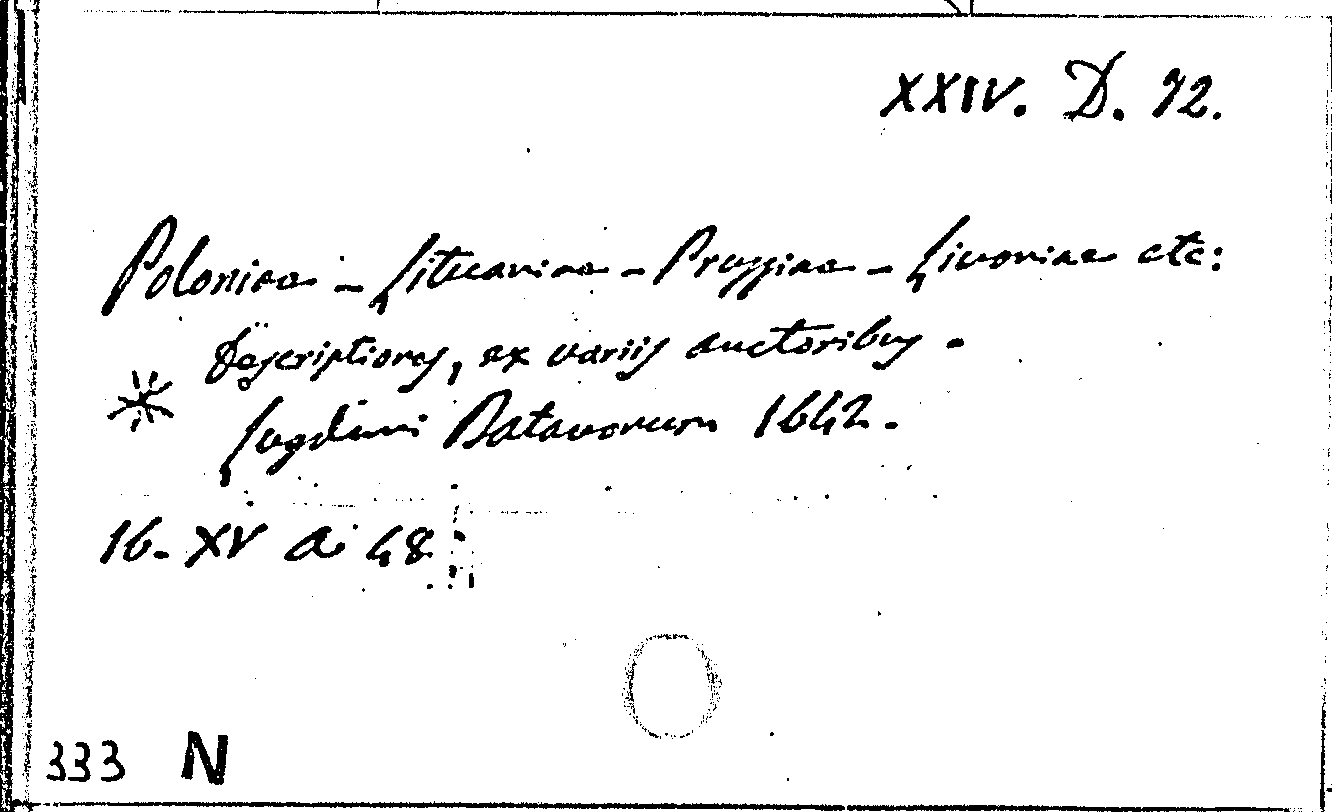 XXIV. D. 92.
Poloniae – Lituaniae – Prussiae – Livoniae etc:
Descriptiones, ex variis auctoribus.
Lugduni Batavorum 1642.
16 - XV a 48
333 N